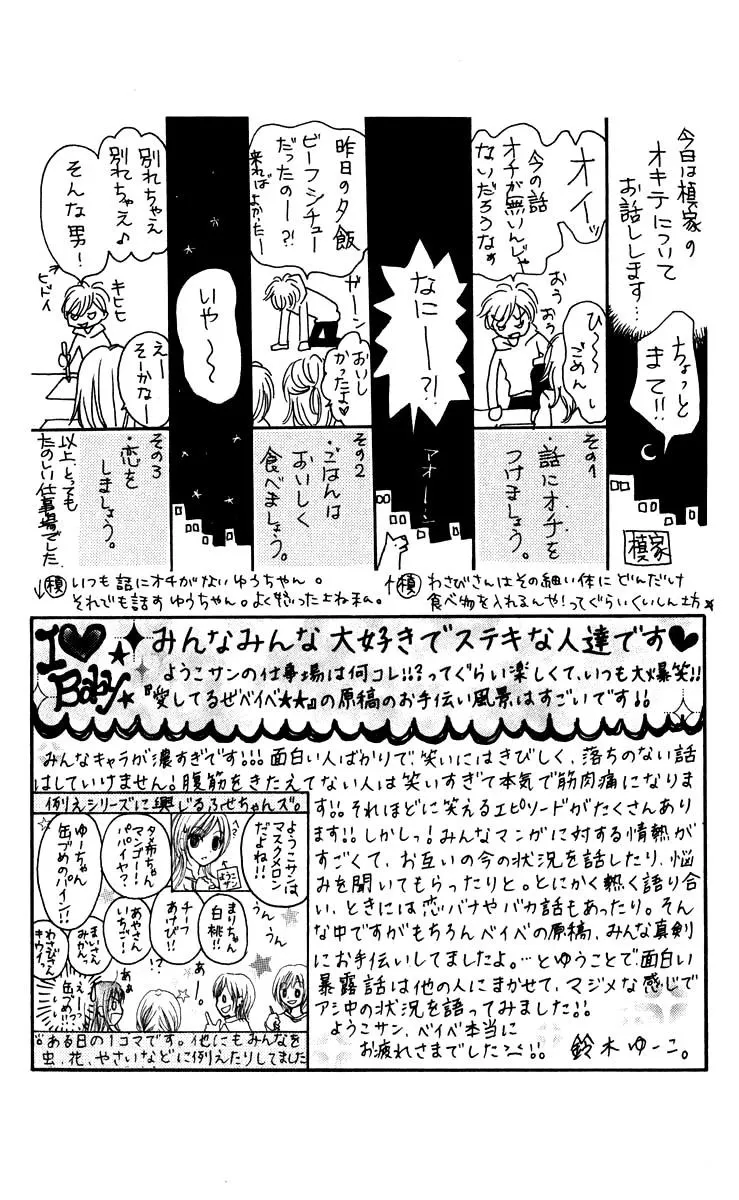 今日は槙家の
オキテについて
お話しします…
ちょっと
まて!!
槙家
オイッ
今の話
オチが無いんじゃ
ないだろうなぁ
おう
おう
ひ〜〜
ごめんし
その1
・話にオチを
つけましょう。
なにーー?!
アオーン
昨日の夕飯
ビーフシチュー
だったのー?!
来れば
よかったー
ガーン
おいし
かったよ♡
その2
・ごはんは
おいしく
食べましょう。
いや〜〜
別れちゃえ
別れちゃえ♪
そんな男!
キヒヒ
ビドイ
えー
そーかなー
その3
・恋を
しましょう。
以上、とっても
たのしい仕事場でした
↑槙 わさびさんはその細い体にどんだけ
食べ物を入れるんや!ってぐらいくいしん坊
↓槙 いつも話にオチがないゆうちゃん。
それでも話すゆうちゃん。よく怒ったよね私。
I♥Baby
みんなみんな大好きでステキな人達です♥
ようこサンの仕事場は何コレ!!?ってぐらい楽しくて、いつも大爆笑!!
『愛してるぜベイベ★★』の原稿のお手伝い風景はすごいです!!
みんなキャラが濃すぎです!!!面白い人ばかりで、笑いにはきびしく、落ちのない話
はしていけません!腹筋をきたえてない人は笑いすぎて本気で筋肉痛になりま
す!!それほどに笑えるエピソードがたくさんあり
ます!!しかしっ!みんなマンガに対する情熱が
すごくて、お互いの今の状況を話したり、悩
みを聞いてもらったりと。とにかく熱く語り合
い、ときには恋バナやバカ話もあったり。そん
な中ですがもちろんベイベの原稿、みんな真剣
にお手伝いしてましたよ。…とゆうことで面白い
暴露話は他の人にまかせて、マジメな感じで
アシ中の状況を語ってみました!!
ようこサン、ベイベ本当に
お疲れさまでした!!
鈴木ゆーこ。
例えシリーズに興じるふせちゃんズ。
ようこサンは
マスクメロン
だよね!!
ようこサン
うん
うん
まりちゃん
白桃!!
チーフ
あけび!!
あやさん
いちごー!
タ布ちゃん
マンゴー!
パパイヤ?
ゆーちゃん
缶づめのパイン!!
まいさん
みかん。
わさびさん
キウイっ
えーっ
缶づめ!!
あー!
ある日の1コマです。他にもみんなを
虫、花、やさいなどに例えたりしてました